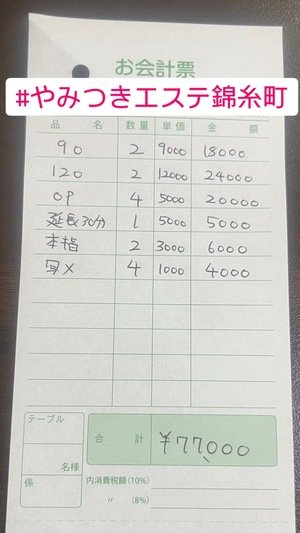 お会計票
#やみつきエステ錦糸町
品 名 数量 単価 金 額
90 2 9000 18000
120 2 12000 24000
OP 4 5000 20000
延長30分 1 5000 5000
本指 2 3000 6000
写メ 4 1000 4000
テーブル
名様
係
合 計 ¥77,000
内消費税額(10%)
〃 (8%)